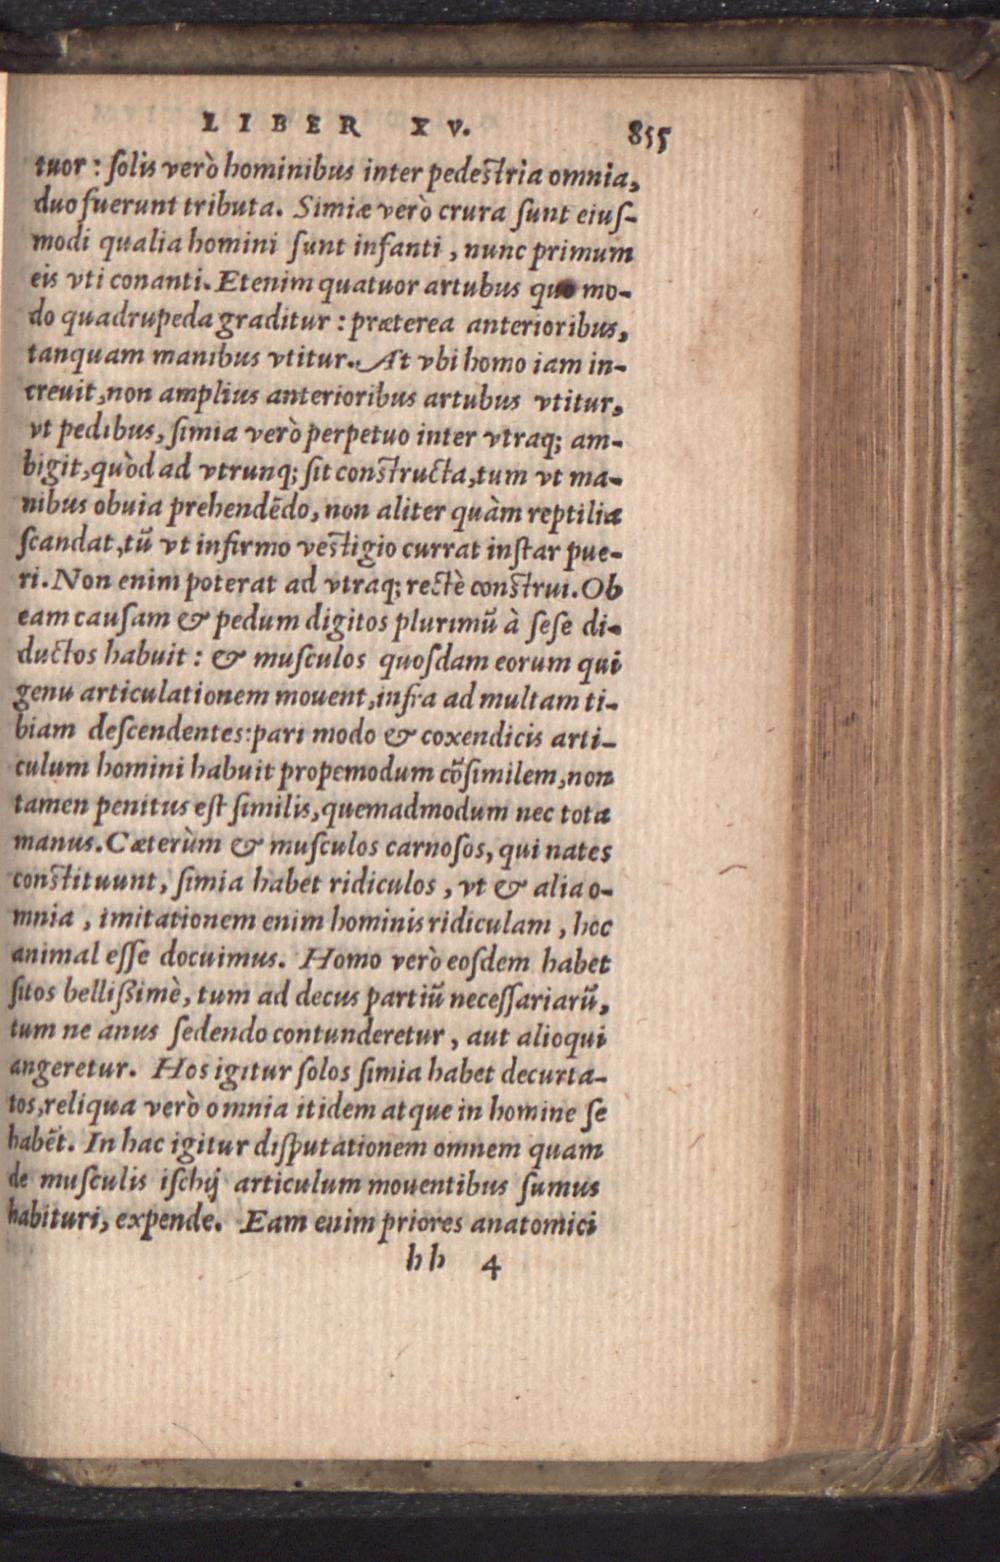 LIBER XV. 855
tuor: solis verò hominibus inter pedestria omnia,
duo fuerunt tributa. Simiæ verò crura sunt eius-
modi qualia homini sunt infanti, nunc primum
eis vti conanti. Etenim quatuor artubus quo mo-
do quadrupeda graditur: præterea anterioribus,
tanquam manibus vtitur. At vbi homo iam in-
creuit, non amplius anterioribus artubus vtitur,
vt pedibus, simia verò perpetuo inter vtraq; am-
bigit, quòd ad vtrunq; sit constructa, tum vt ma-
nibus obuia prehendẽdo, non aliter quàm reptilia
scandat, tũ vt infirmo vestigio currat instar pue-
ri. Non enim poterat ad vtraq; rectè construi. Ob
eam causam & pedum digitos plurimũ à sese di-
ductos habuit: & musculos quosdam eorum qui
genu articulationem mouent, infra ad multam ti-
biam descendentes: pari modo & coxendicis arti-
culum homini habuit propemodum cõsimilem, non
tamen penitus est similis, quemadmodum nec tota
manus. Cæterùm & musculos carnosos, qui nates
constituunt, simia habet ridiculos, vt & alia o-
mnia, imitationem enim hominis ridiculam, hoc
animal esse docuimus. Homo verò eosdem habet
sitos bellißimè, tum ad decus partiũ necessariarũ,
tum ne anus sedendo contunderetur, aut alioqui
angeretur. Hos igitur solos simia habet decurta-
tos, reliqua verò omnia itidem atque in homine se
habẽt. In hac igitur disputationem omnem quam
de musculis ischij articulum mouentibus sumus
habituri, expende. Eam enim priores anatomici
hh 4